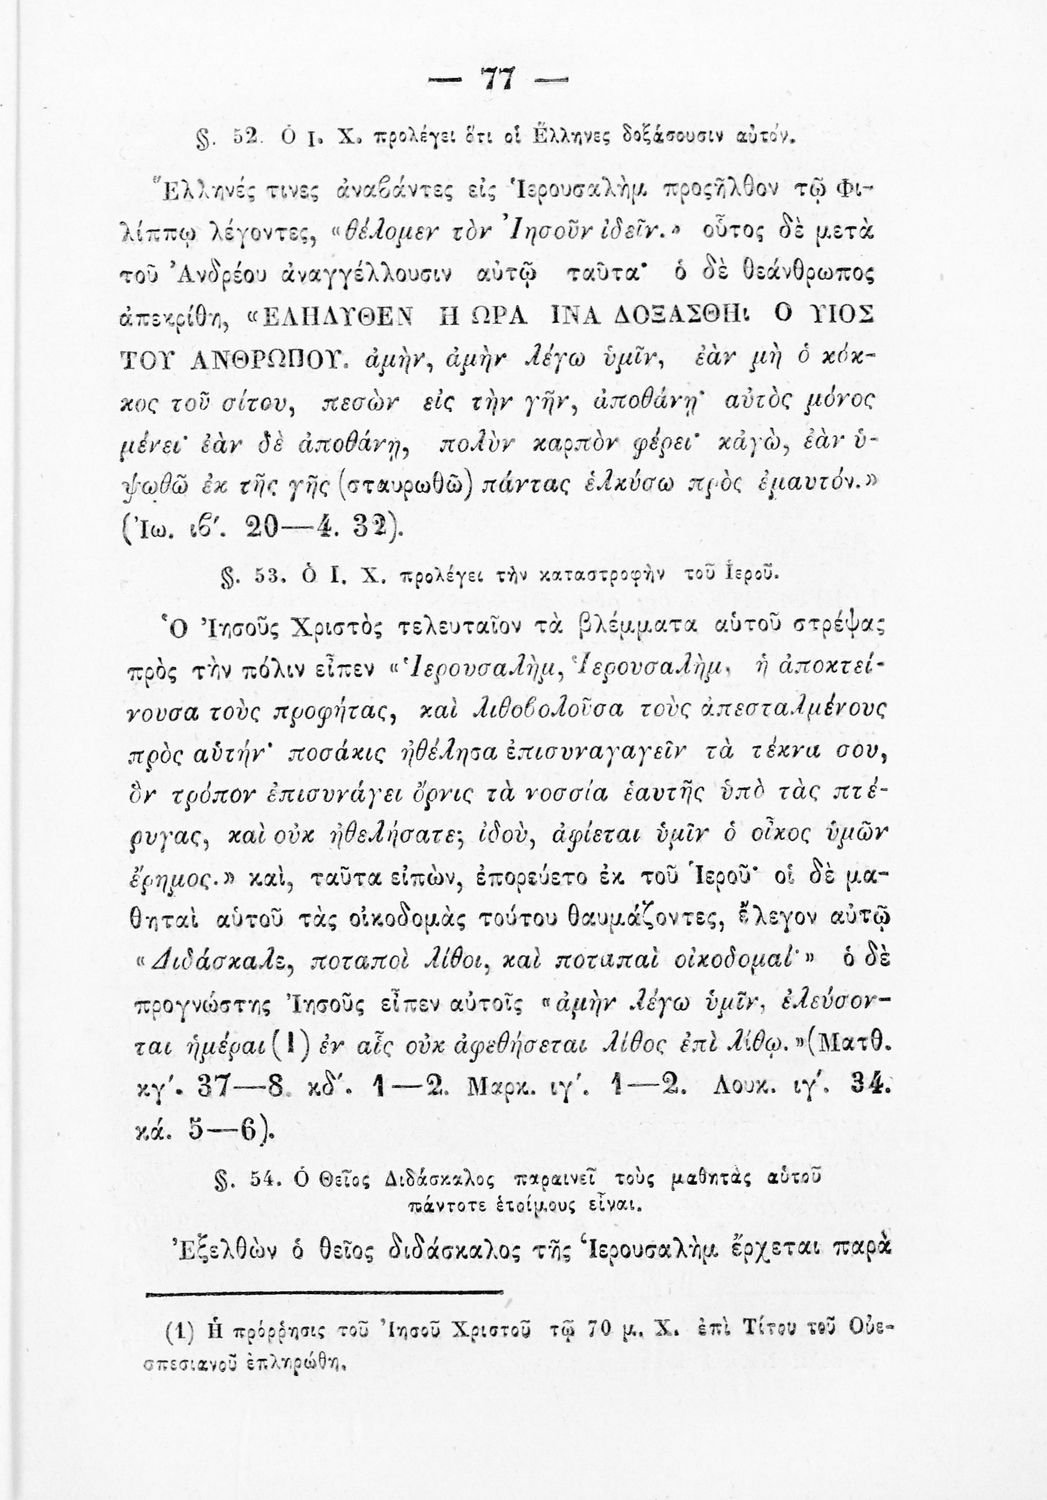 — 77 —
§. 52. Ὁ Ι. Χ. προλέγει ὅτι οἱ Ἕλληνες δοξάσουσιν αὐτόν.
Ἕλληνές τινες ἀναβάντες εἰς Ἱερουσαλὴμ προςῆλθον τῷ Φι-
λίππῳ λέγοντες, «θέλομεν τὸν Ἰησοῦν ἰδεῖν.» οὗτος δὲ μετὰ
τοῦ Ἀνδρέου ἀναγγέλλουσιν αὐτῷ ταῦτα· ὁ δὲ θεάνθρωπος
ἀπεκρίθη, «ΕΛΗΛΥΘΕΝ Η ΩΡΑ ΙΝΑ ΔΟΞΑΣΘΗι Ο ΥΙΟΣ
ΤΟΥ ΑΝΘΡΩΠΟΥ. ἀμὴν, ἀμὴν λέγω ὑμῖν, ἐὰν μὴ ὁ κόκ-
κος τοῦ σίτου, πεσὼν εἰς τὴν γῆν, ἀποθάνῃ· αὐτὸς μόνος
μένει· ἐὰν δὲ ἀποθάνῃ, πολὺν καρπὸν φέρει· κἀγὼ, ἐὰν ὑ-
ψωθῶ ἐκ τῆς γῆς (σταυρωθῶ) πάντας ἑλκύσω πρὸς ἐμαυτόν.»
(Ἰω. ιβ′. 20—4. 32).
§. 53. Ὁ Ι. Χ. προλέγει τὴν καταστροφὴν τοῦ Ἱεροῦ.
Ὁ Ἰησοῦς Χριστὸς τελευταῖον τὰ βλέμματα αὑτοῦ στρέψας
πρὸς τὴν πόλιν εἶπεν «Ἱερουσαλὴμ, Ἱερουσαλὴμ, ἡ ἀποκτεί-
νουσα τοὺς προφήτας, καὶ λιθοβολοῦσα τοὺς ἀπεσταλμένους
πρὸς αὑτήν· ποσάκις ἠθέλησα ἐπισυναγαγεῖν τὰ τέκνα σου,
ὃν τρόπον ἐπισυνάγει ὄρνις τὰ νοσσία ἑαυτῆς ὑπὸ τὰς πτέ-
ρυγας, καὶ οὐκ ἠθελήσατε; ἰδοὺ, ἀφίεται ὑμῖν ὁ οἶκος ὑμῶν
ἔρημος.» καὶ, ταῦτα εἰπὼν, ἐπορεύετο ἐκ τοῦ Ἱεροῦ· οἱ δὲ μα-
θηταὶ αὑτοῦ τὰς οἰκοδομὰς τούτου θαυμάζοντες, ἔλεγον αὐτῷ
«Διδάσκαλε, ποταποὶ λίθοι, καὶ ποταπαὶ οἰκοδομαί·» ὁ δὲ
προγνώστης Ἰησοῦς εἶπεν αὐτοῖς «ἀμὴν λέγω ὑμῖν, ἐλεύσον-
ται ἡμέραι (1) ἐν αἷς οὐκ ἀφεθήσεται λίθος ἐπὶ λίθῳ.» (Ματθ.
κγ′. 37—8. κδ′. 1—2. Μαρκ. ιγ′. 1—2. Λουκ. ιγ′. 34.
κά. 5—6).
§. 54. Ὁ Θεῖος Διδάσκαλος παραινεῖ τοὺς μαθητὰς αὑτοῦ
πάντοτε ἑτοίμους εἶναι.
Ἐξελθὼν ὁ θεῖος διδάσκαλος τῆς Ἱερουσαλὴμ ἔρχεται παρὰ
(1) Ἡ πρόῤῥησις τοῦ Ἰησοῦ Χριστοῦ τῷ 70 μ. Χ. ἐπὶ Τίτου τοῦ Οὐε-
σπεσιανοῦ ἐπληρώθη.